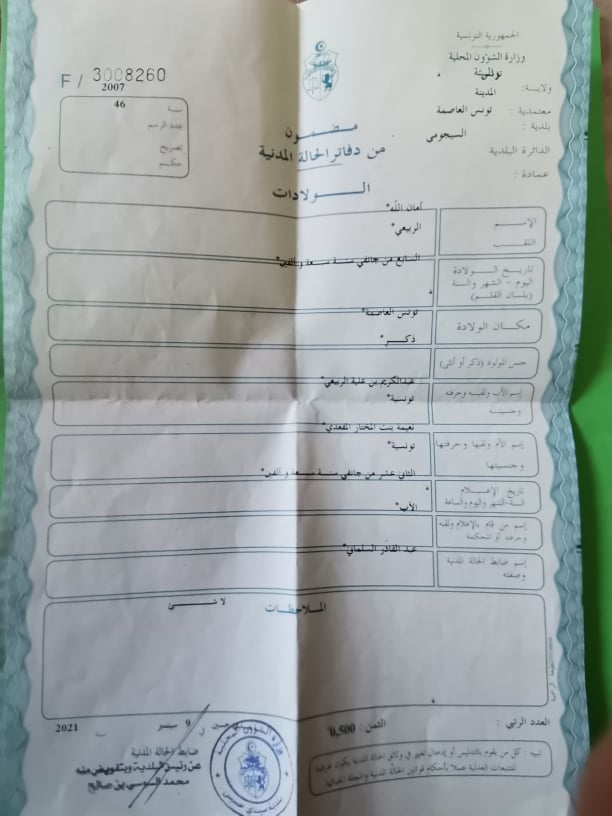 الجمهورية التونسية
وزارة الشؤون المحلية
ولاية : تونس
معتمدية : المدينة
بلدية : تونس العاصمة
الدائرة البلدية السيجومي
عمادة :
F / 3008260
سنة 2007
عدد الرسم 46
تصريح
حكم
مضمون
من دفاتر الحالة المدنية
الولادات
الإسم أمان الله*
اللقب الربيعي*
تاريخ الولادة السابع من جانفي سنة سبعة وألفين*
اليوم - الشهر والسنة
(بلسان القلم)
مكان الولادة تونس العاصمة*
جنس المولود (ذكر أو أنثى) ذكر*
إسم الأب ولقبه وحرفته عبدالكريم بن علية الربيعي*
وجنسيته تونسية*
إسم الأم ولقبها وحرفتها نعيمة بنت المختار المقعدي*
وجنسيتها تونسية*
تاريخ الإعلام الثاني عشر من جانفي سنة سبعة وألفين*
السنة-الشهر واليوم والساعة
إسم من قام بالإعلام ولقبه الأب*
وحرفته أو المحكمة
إسم ضابط الحالة المدنية عبد القادر السلماي*
وصفته
الملاحظات لا شئ
العدد الرتبي :
الثمن : 0,500
في 9 سبتمبر سنة 2021
ضابط الحالة المدنية
عن رئيس البلدية وبتفويض منه
بن صالح
تنبيه : كل من يقوم بالتدليس أو إدخال تغيير في وثائق الحالة المدنية يكون عرضة
للتتبعات العدلية عملا بأحكام قوانين الحالة المدنية والمجلة الجنائية